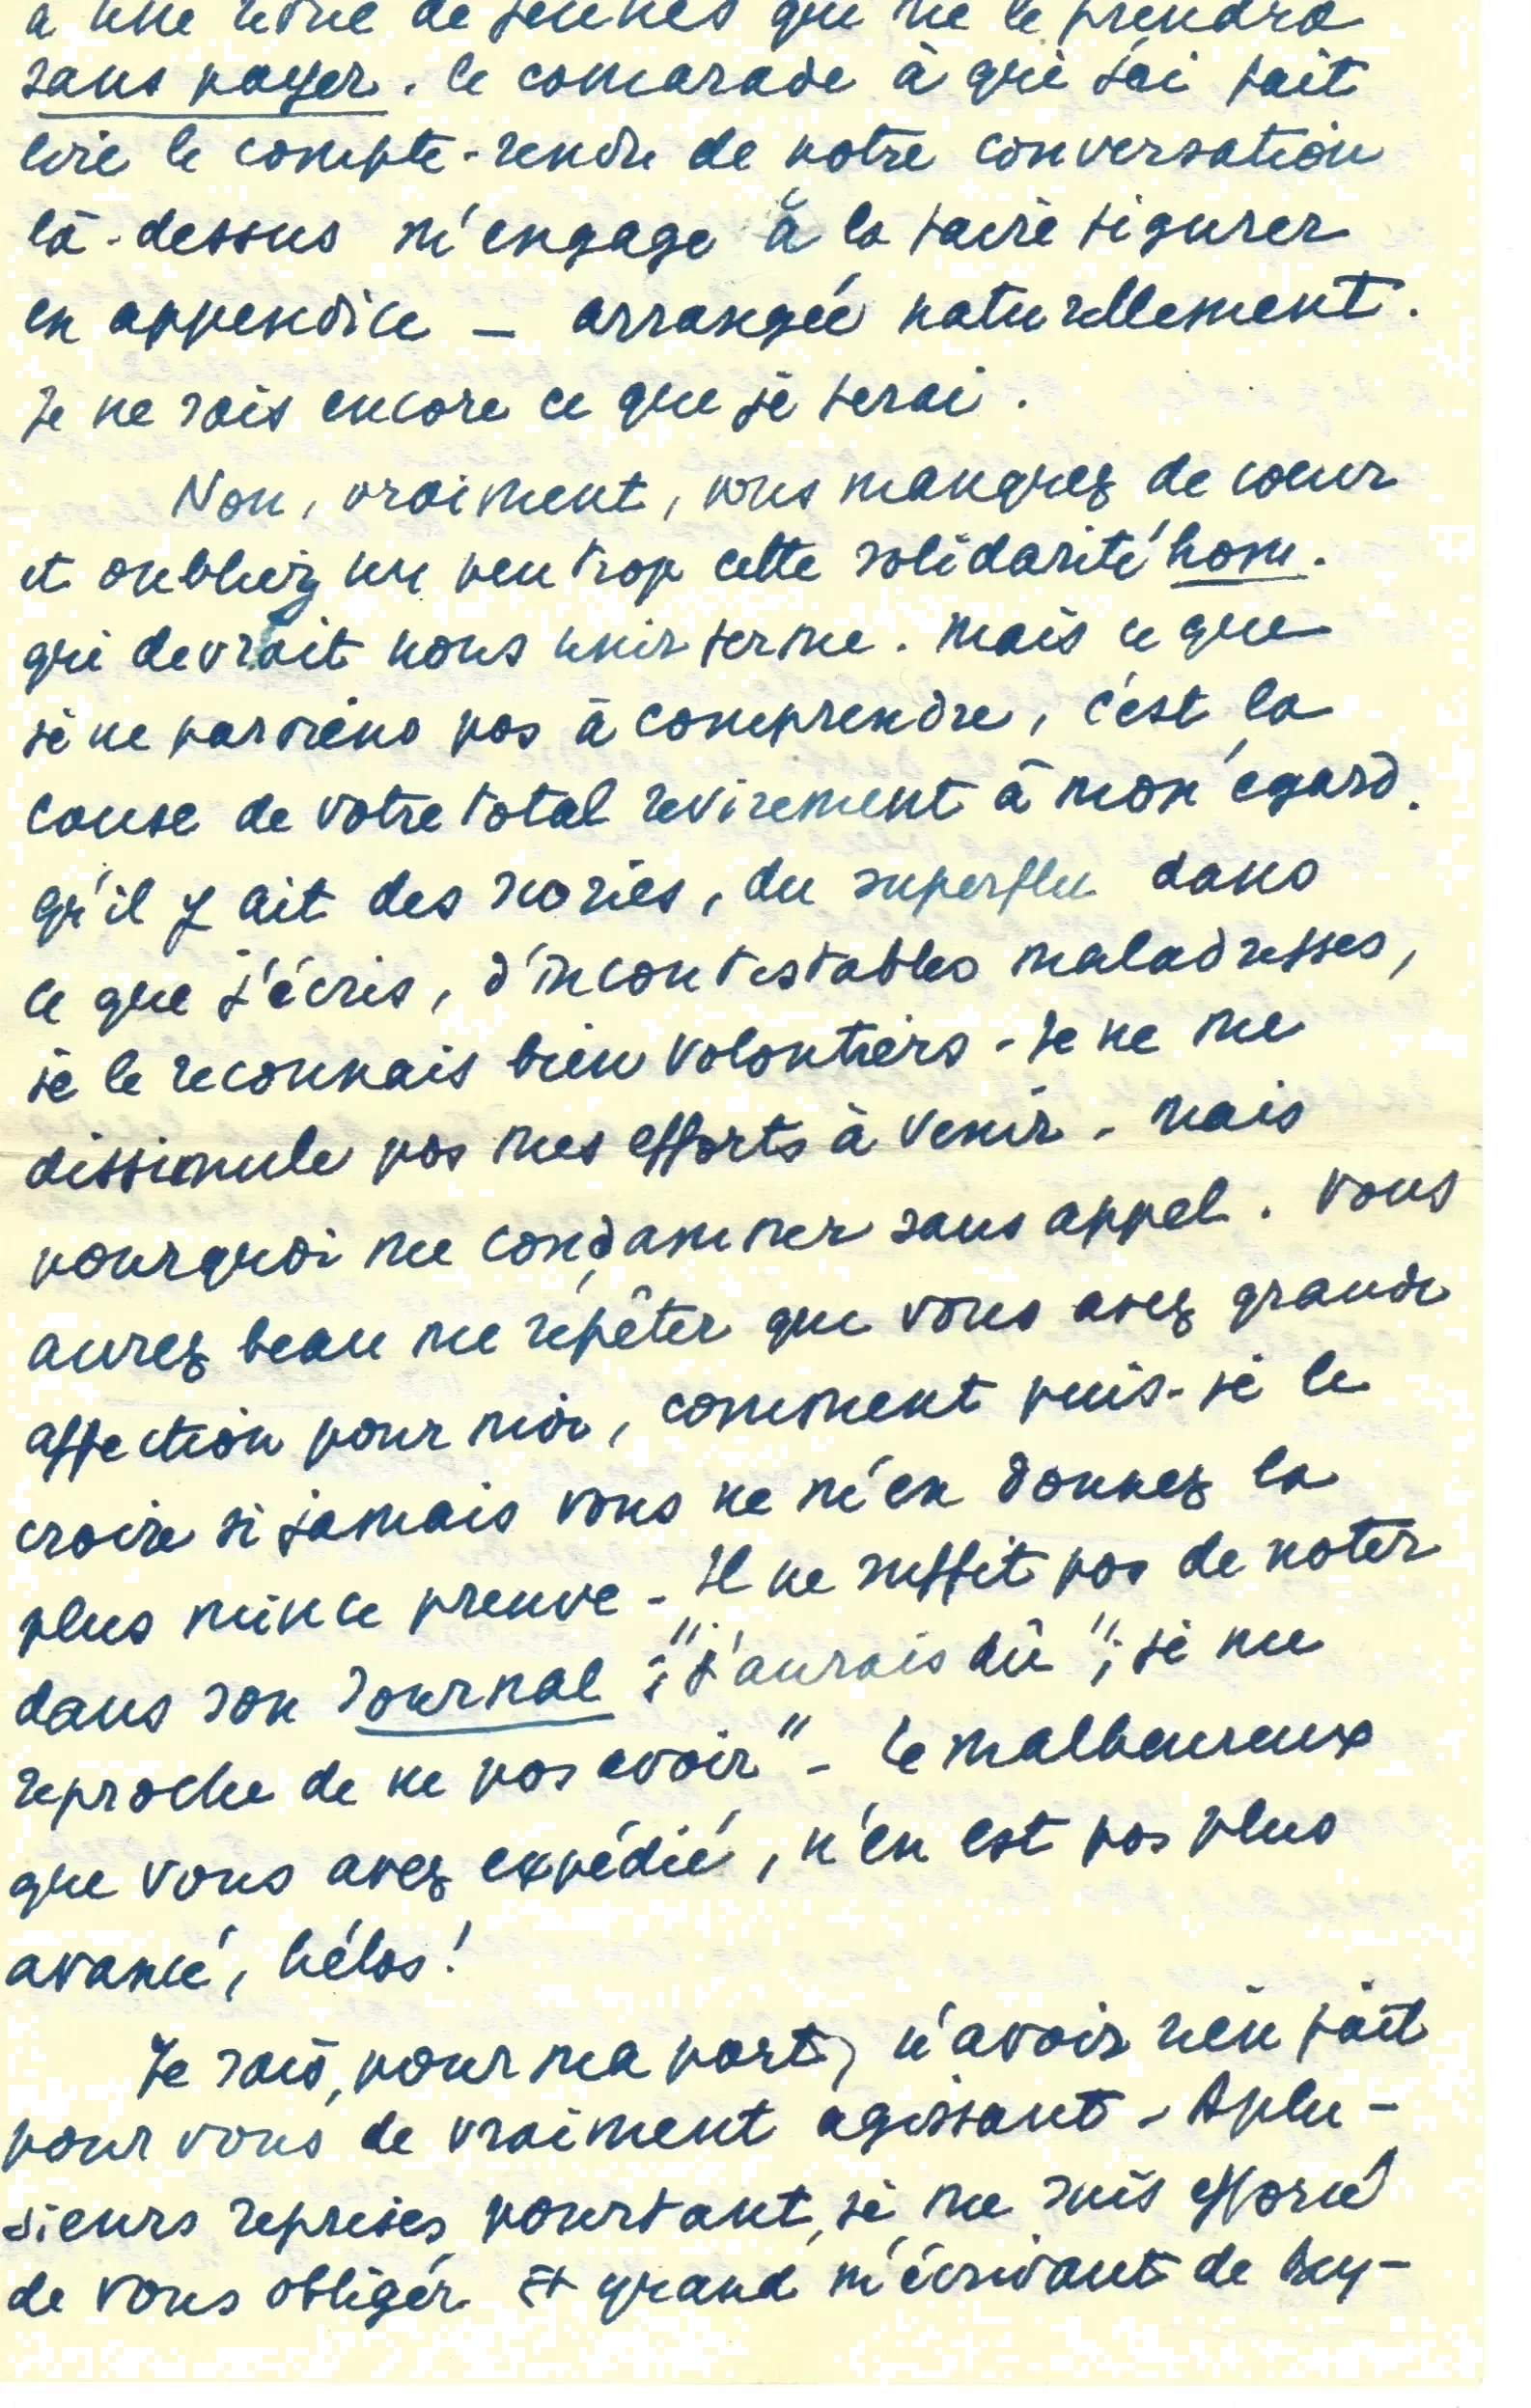 à une revue de jeunes qui me le prendra
sans payer. le camarade à qui j'ai fait
lire le compte-rendu de notre conversation
là-dessus m'engage à la faire figurer
en appendice — arrangée naturellement.
Je ne sais encore ce que je ferai.
Non, vraiment, vous manquez de cœur
et oubliez un peu trop cette solidarité hom.
qui devrait nous unir ferme. Mais ce que
je ne parviens pas à comprendre, c'est la
cause de votre total revirement à mon égard.
qu'il y ait des scories, du superflu dans
ce que j'écris, d'incontestables maladresses,
je le reconnais bien volontiers - Je ne me
dissimule pas mes efforts à venir - mais
pourquoi me condamner sans appel. Vous
aurez beau me répéter que vous avez grande
affection pour moi, comment puis-je le
croire si jamais vous ne m'en donnez la
plus mince preuve - Il ne suffit pas de noter
dans son Journal : "J'aurais dû"; je me
reproche de ne pas avoir" - Le malheureux
que vous avez expédié, n'en est pas plus
avancé, hélas!
Je sais, pour ma part, n'avoir rien fait
pour vous de vraiment agissant - A plu-
sieurs reprises, pourtant, je me suis efforcé
de vous obliger. Et quand m'écrivant de Bey-